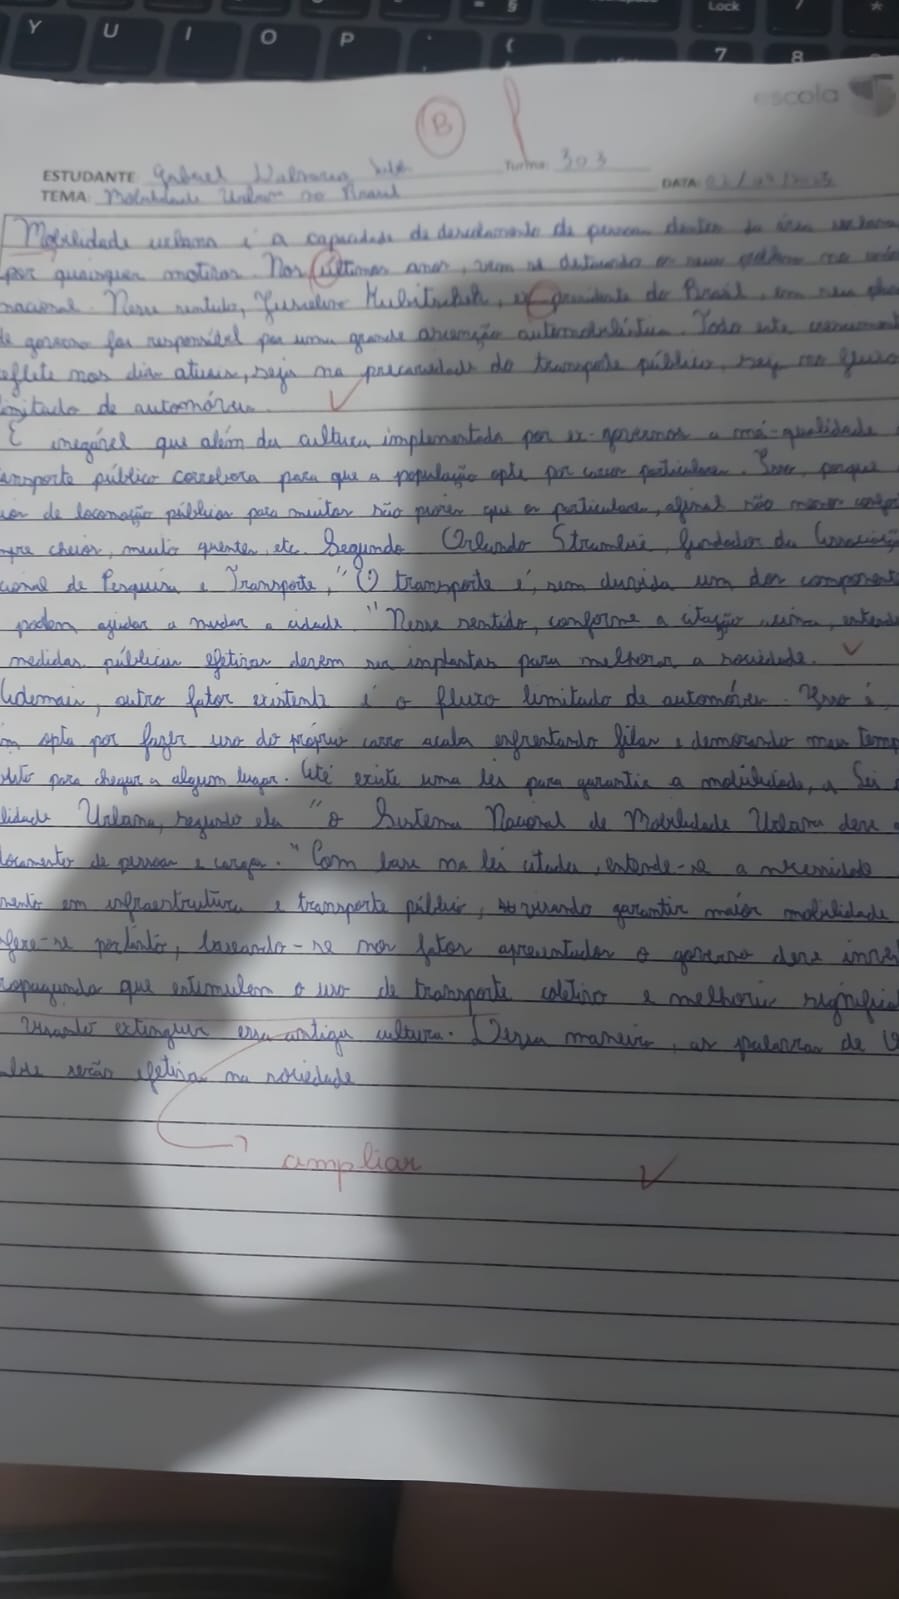 Y U I O P Lock 7 8 *
escola
B
ESTUDANTE: Gabriel
Turma: 303
DATA:
TEMA: Mobilidade Urbana no Brasil
Mobilidade urbana é a capacidade de deslocamento de pessoas dentro da área urbana
por quaisquer motivos. Nos últimos anos, vem se
nacional. Nesse sentido, Juscelino Kubitschek, ex presidente do Brasil, em seu
de governo foi responsável por uma grande automobilística. Todo este
eflete nos dias atuais, seja na precariedade do transporte público, seja no fluxo
imitado de automóveis.
É inegável que além da cultura implementada por ex-governos a má-qualidade
ansporte público corrobora para que a população opte por carros particulares. Isso, porque
de locomoção públicos para muitos são piores que os particulares, afinal são menos
mpre cheios, muito quentes, etc. Segundo Orlando Strambi, fundador da Associação
cional de Pesquisa e Transporte, "O transporte é, sem duvida um dos component
podem ajudar a mudar a cidade." Nesse sentido, conforme a citação acima, entende
medidas públicas efetivas devem ser implantas para melhorar a sociedade.
Ademais, outro fator existente é o fluxo limitado de automóveis. Isso é,
m opta por fazer uso do próprio carro acaba enfrentando filas e demorando mais temp
para chegar a algum lugar. Até existe uma lei para garantir a mobilidade, a Lei
lidade Urbana, segundo ela "o Sistema Nacional de Mobilidade Urbana deve
locamento de pessoas e cargas." Com base na lei citada, entende-se a necessidade
mento em infraestrutura e transporte público, visando garantir maior mobilidade
fere-se portanto, baseando-se nos fatos apresentados o governo deve inves
ropaganda que estimulem o uso de transporte coletivo e melhoria significa
Visando extinguir essa antiga cultura. Dessa maneira, as palavras de O
serão efetivas na sociedade
ampliar